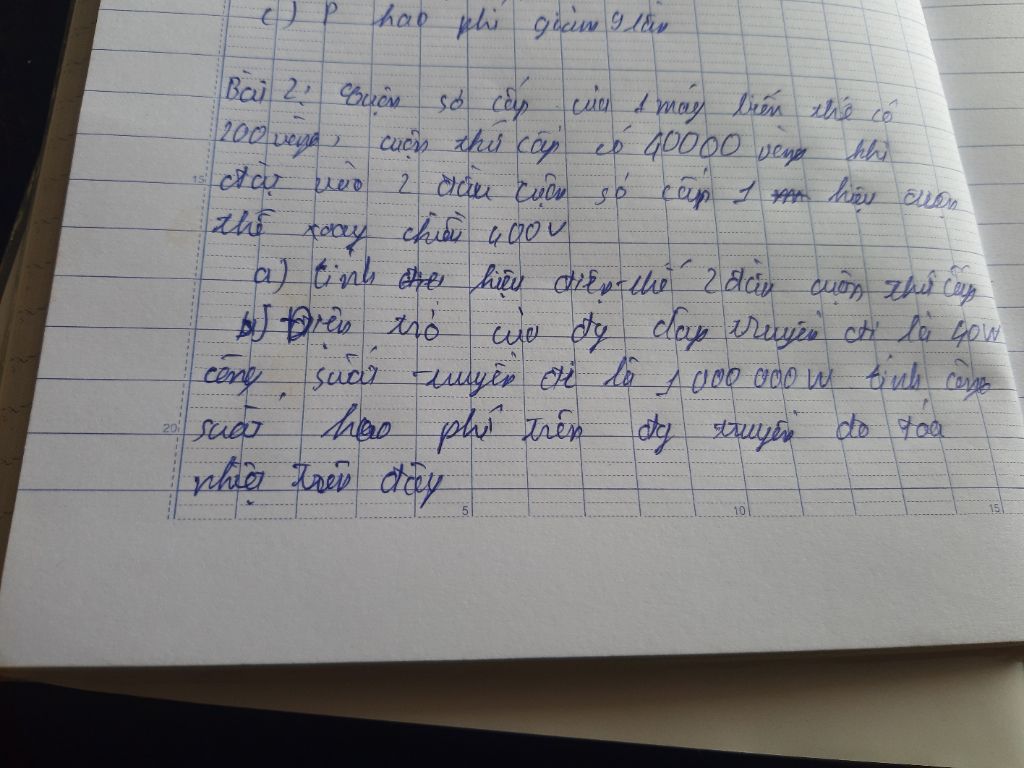 c) P hao phí giảm 9 lần
Bài 2: Cuộn sơ cấp của 1 máy biến thế có
200 vòng, cuộn thứ cấp có 40000 vòng khi
đặt vào 2 đầu cuộn sơ cấp 1 hiệu
thế xoay chiều 400V
a) tính hiệu điện thế 2 đầu cuộn thứ cấp
b) Điện trở của đg dây truyền đi là 40W
công suất truyền đi là 1 000 000W tính công
suất hao phí trên đg truyền do tỏa
nhiệt trên dây
15
20
5
10
15